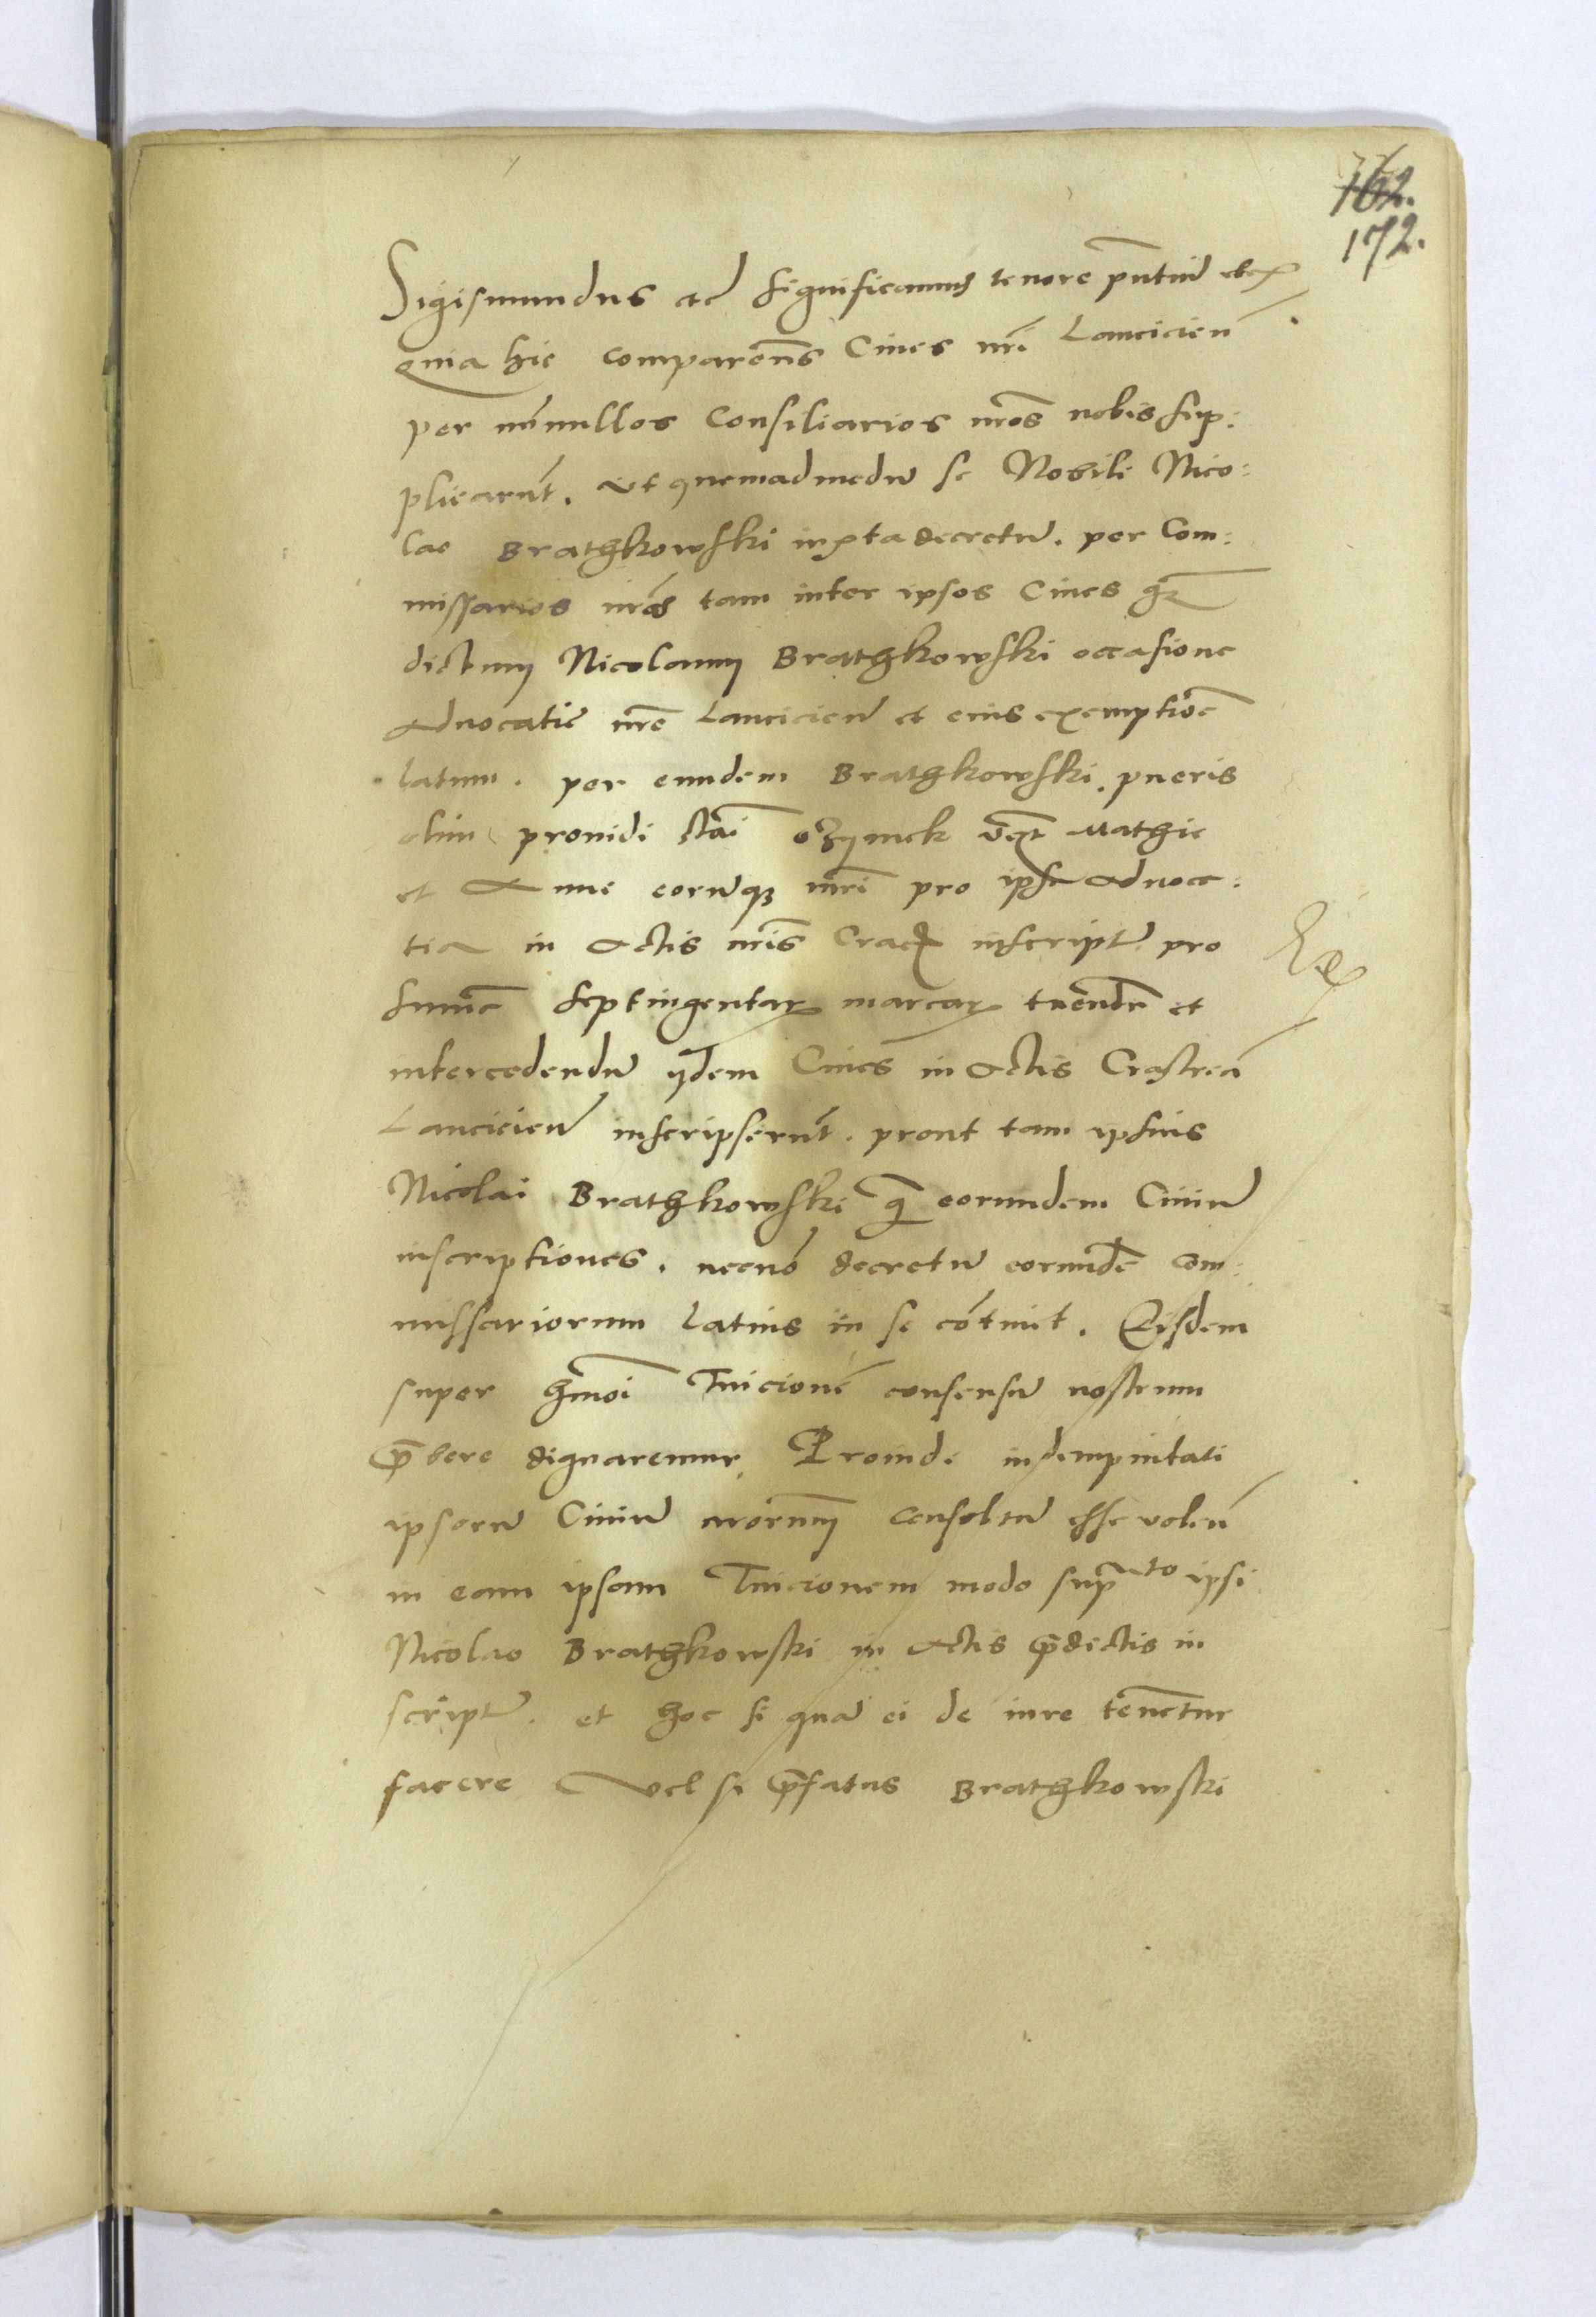 162.
172.
Sigismundus etc Significamus tenore pñtiũ etc
quia hic compareñs Ciues nr̃i Lancicieñ
per nõnullos Consiliarios nr̃os nobis sup:
plicarũt. ut quemadmodũ se Nobili Nico:
lao Brathkowski iuxta decretũ. per Com:
missarios nr̃os tam inter ipsos Ciues
dictum Nicolaum Brathkowski occasione
Aduocatiẽ nr̃e Lancicieñ et eius exemptiõe
latum. per eundem Brathkowski. pueris
olim prouidi Stãi ozymek vz̃ Mathie
et Anne eorũqz mr̃i pro ipsa aduoca:
tia in Actis nr̃is Crac̃ inscriptũ pro
summa septingentarꝝ marcarꝝ tuendũ et
intercedendũ ijdem Ciues in Actis Castreñ
Lancicieñ inscripserũt. prout tam ipsius
Nicolai Brathkowski q̃ eorundem Ciuiũ
inscriptiones. necnõ decretũ eorundẽ Com:
missariorum latius in se cõtinet. Eisdem
super hmõi Tuicionẽ consensũ nostrum
p̃bere dignaremur. Proinde indempnitati
ipsorũ Ciuiũ nr̃orum consultũ esse voleñ
in eam ipsam Tuicionem modo supra^to ipsi
Nicolao Brathkowski in Actis p̃dictis in
scriptũ. et hoc si quã ei de iure tenẽtur
facere Vel si p̃fatus Brathkowski